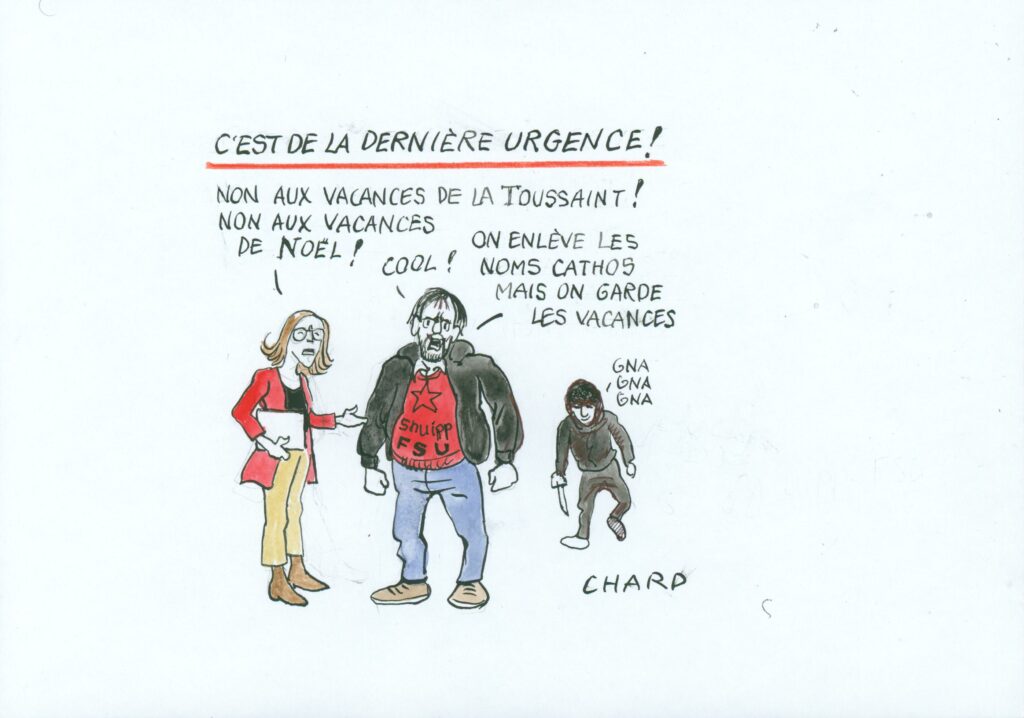 C'EST DE LA DERNIÈRE URGENCE !
NON AUX VACANCES DE LA TOUSSAINT !
NON AUX VACANCES
DE NOËL !
COOL !
ON ENLÈVE LES
NOMS CATHOS
MAIS ON GARDE
LES VACANCES
Snuipp
FSU
GNA
GNA
GNA
CHARD